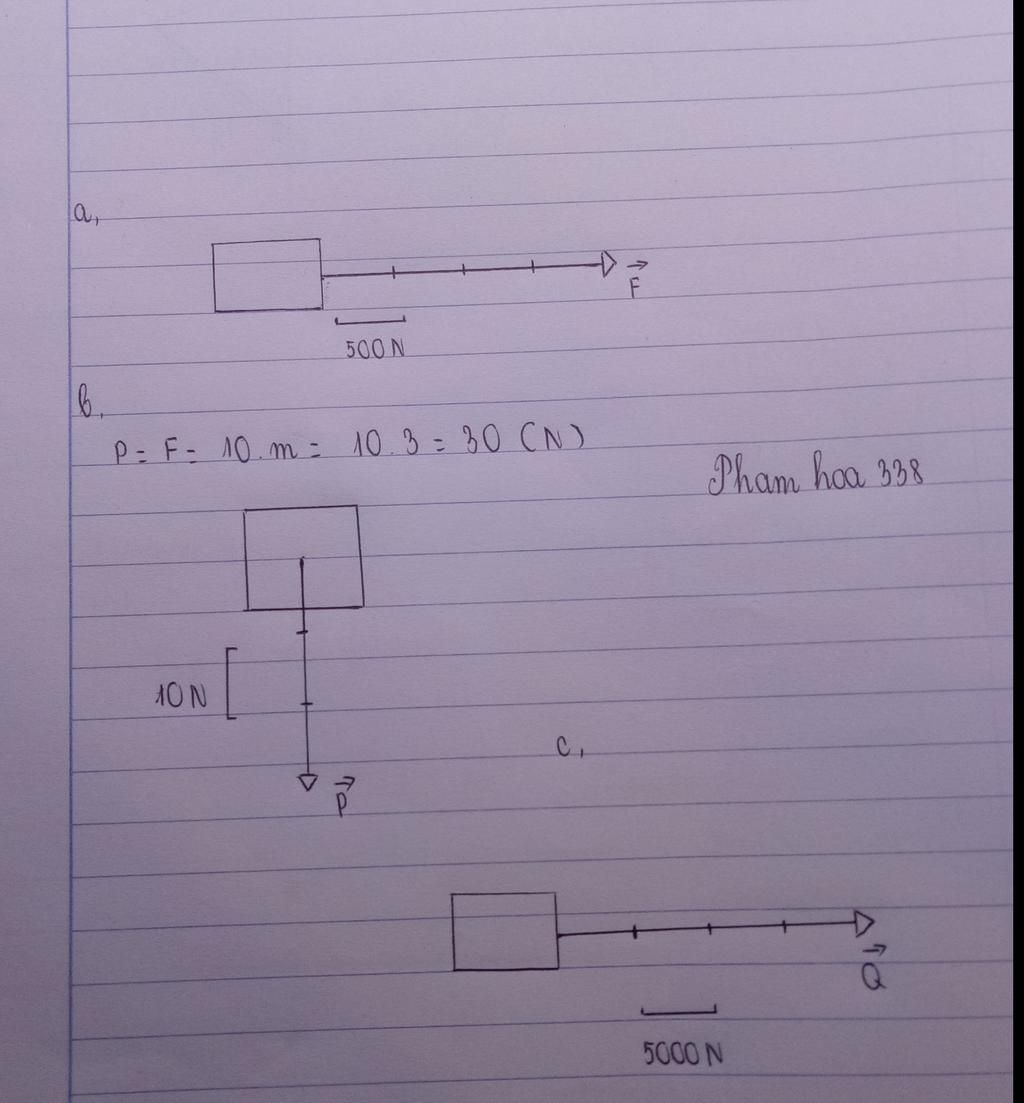 a,
F
500 N
b,
P = F = 10.m = 10.3 = 30 (N)
Pham hoa 338
10 N
P
c,
Q
5000 N